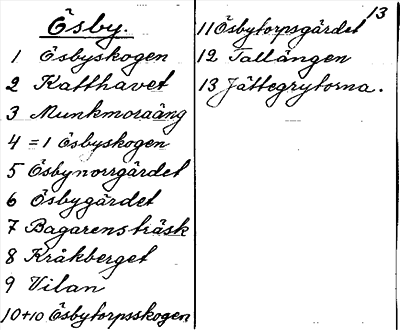 Ösby.
1 Ösbyskogen
2 Katthavet
3 Munkmoraäng
4 = 1 Ösbyskogen
5 Ösbynorrgärdet
6 Ösbygärdet
7 Bagarens träsk
8 Kråkberget
9 Vilan
10+10 Ösbytorpsskogen
13
11 Ösbytorpsgärdet
12 Tallängen
13 Jättegrytorna.